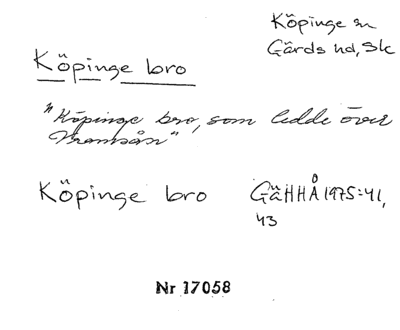 Köpinge sn
Gärds hd, Sk
Köpinge bro
"Köpinge bro, som ledde över
Vramsån"
Köpinge bro GäHHÅ 1975:41,
43
Nr 17058